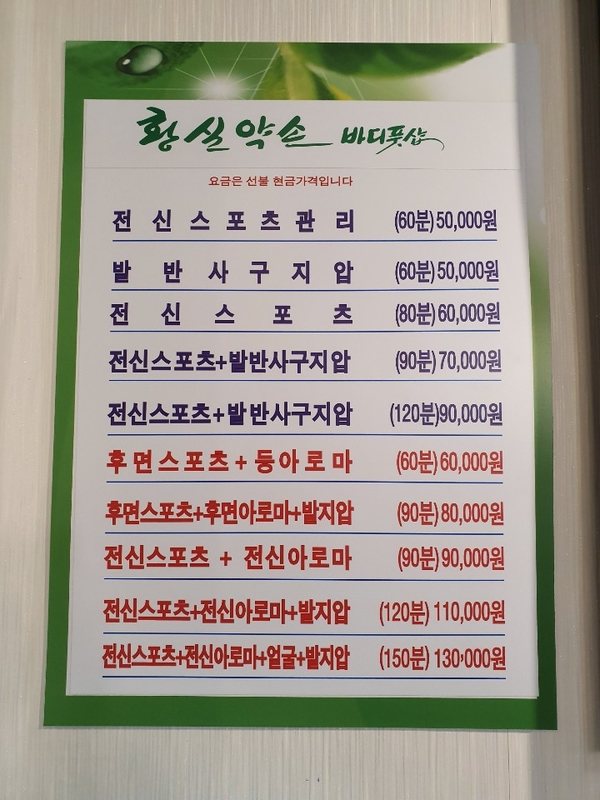 황실약손 바디풋샵
요금은 선불 현금가격입니다
전신스포츠관리 (60분) 50,000원
발반사구지압 (60분) 50,000원
전신스포츠 (80분) 60,000원
전신스포츠+발반사구지압 (90분) 70,000원
전신스포츠+발반사구지압 (120분)90,000원
후면스포츠+등아로마 (60분) 60,000원
후면스포츠+후면아로마+발지압 (90분) 80,000원
전신스포츠 + 전신아로마 (90분) 90,000원
전신스포츠+전신아로마+발지압 (120분) 110,000원
전신스포츠+전신아로마+얼굴+발지압 (150분) 130,000원